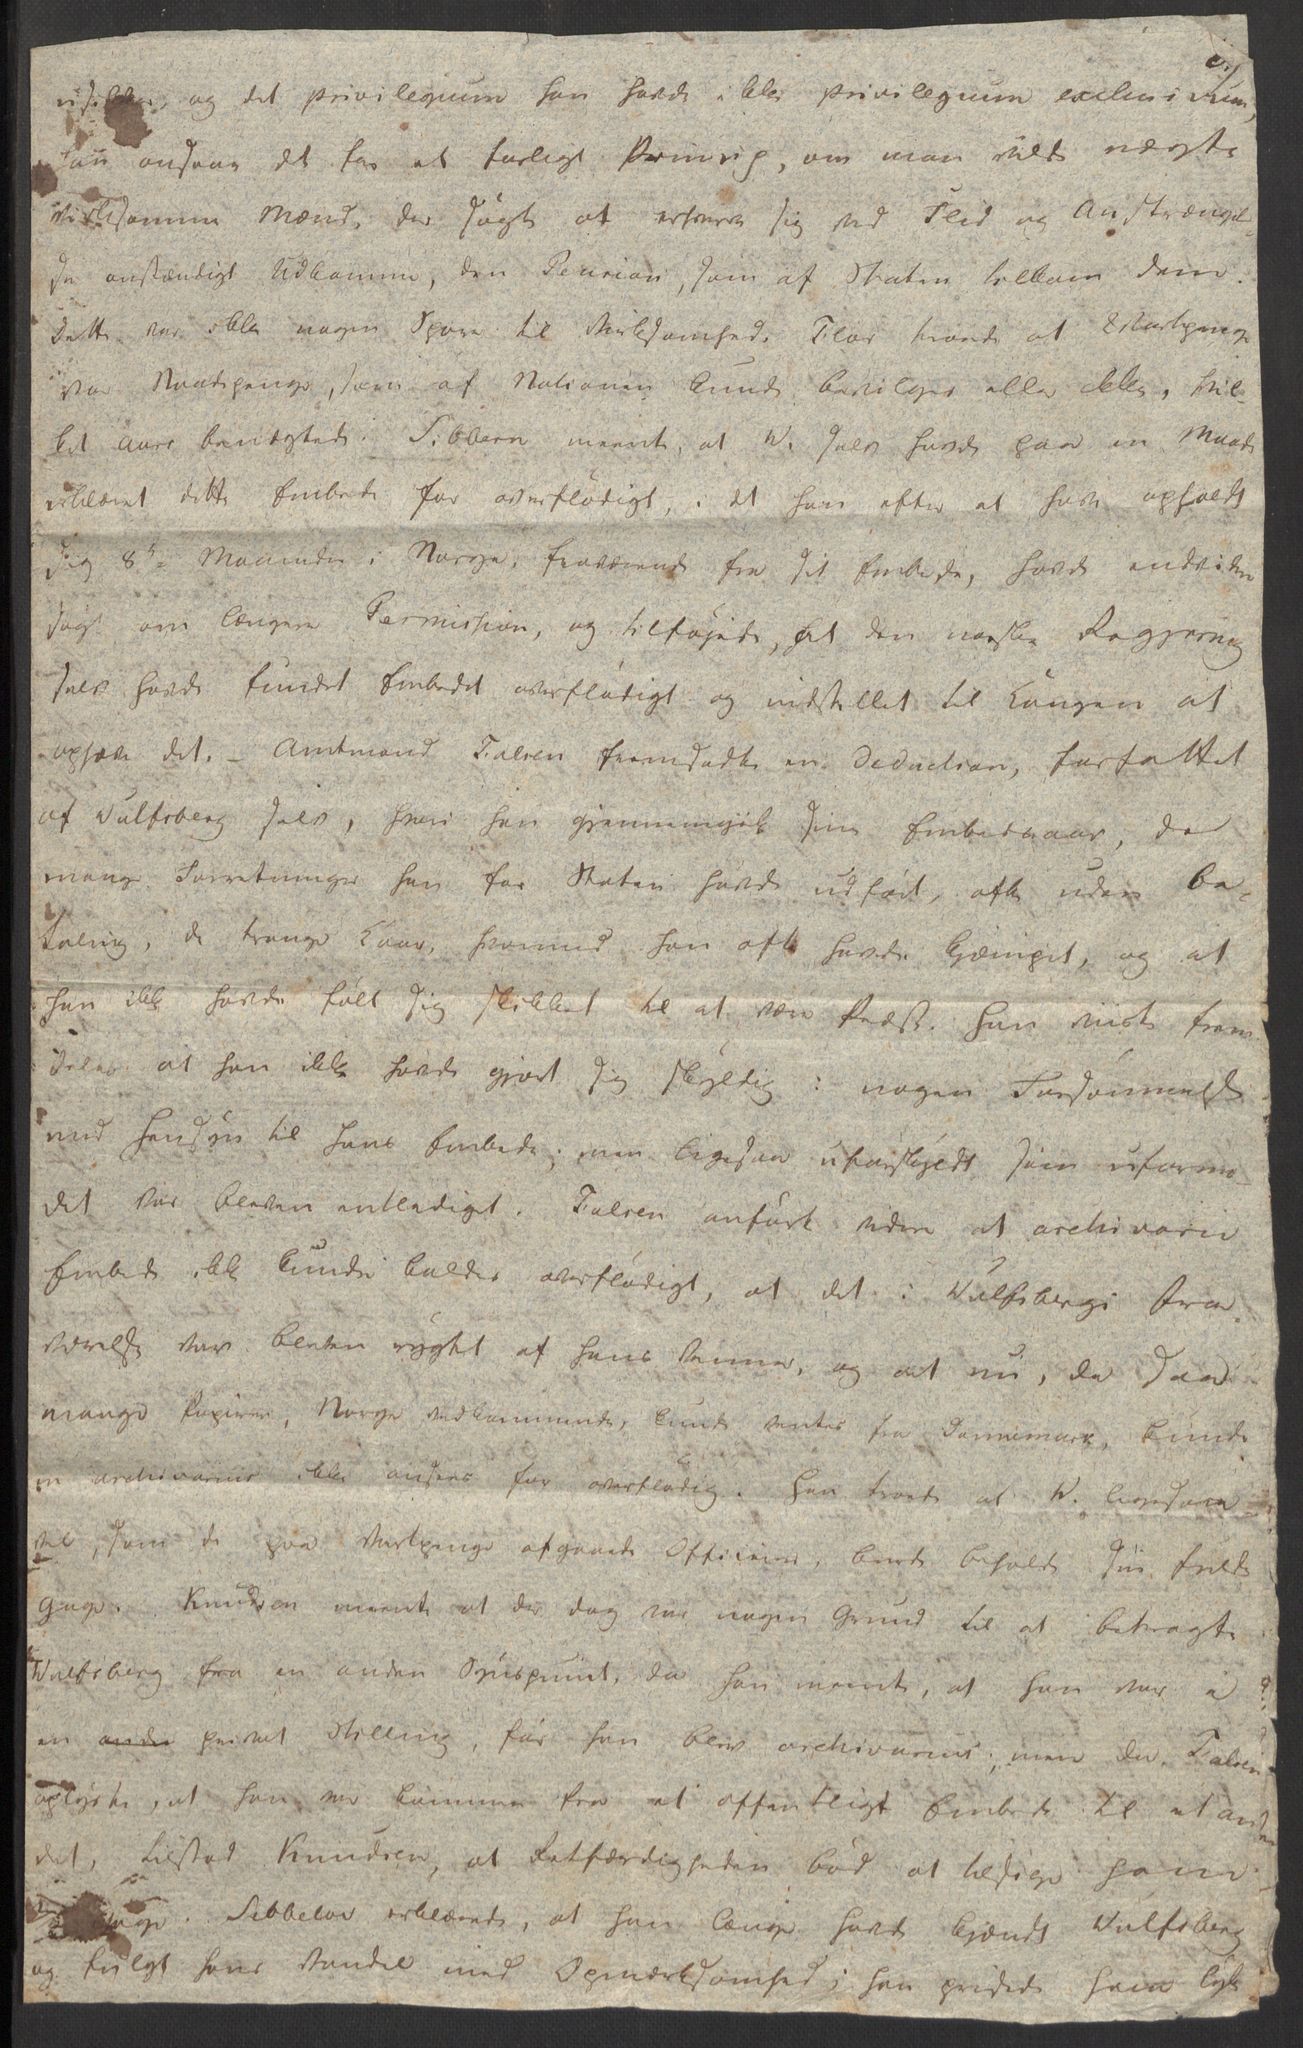 og det privilegium han havde ikke privilegium exclusivum,
han ansaae det for et farligt Princip, om man vilde nægte
virksomme Mænd, der søgte at erhverve sig ved Flid og Anstrængel-
se anstændigt Udkomme, den Pension, som af Staten tilkom dem.
Dette var ikke nogen Spore til Virksomhed. Flor troede at Vartpenge
var Naadepenge, som af Nationen kunde bevilges eller ikke, hvil-
ket Aars benægtede. Sibbern meente, at W. selv havde paa en Maade
erklæret dette Embede for overflødigt, i det han efter at have opholdt
sig 8te Maaneder i Norge, fraværende fra sit Embede, havde endvidere
søgt om længere Permission, og tilføjede, at den norske Regjering
selv havde fundet Embedet overflødigt og indstillet til Kongen at
ophæve det. – Amtmand Falsen fremsadte en Deduction, forfattet
af Wulfsberg selv, hvori han gjennemgik sine Embedsaar, de
mange Forretninger han for Staten havde udført, ofte uden Be-
taling, de trange Kaar, hvormed han ofte havde kjæmpet, og at
han ikke havde følt sig skikket til at være Præst. Han viste frem-
deles at han ikke havde gjort sig skyldig i nogen Forsømmelse
med Hensyn til hans Embede, men ligesaa uforskyldt som uformo-
det var bleven entlediget. Falsen anførte videre at archivarie
Embedet ikke kunde kaldes overflødigt, at det i Wulfsbergs Fra-
værelse var bleven røgtet af hans Venner, og at nu, da saa
mange Papirer, Norge vedkommende, kunde ventes fra Dannemark, kunde
en archivarius ikke ansees for overflødig. Han troede at W. ligesaa
vel, som de paa Vartpenge afgaaede Officierer, burde beholde sin fulde
Gage. Knudsen meente at der dog var nogen Grund til at betragte
Wulfsberg fra en anden Synspunct, da han meente, at han var i
en anden privat Stilling, før han blev archivarius; men da Falsen
oplyste, at han var kommen fra et offentligt Embede til et an-
det, tilstod Knudsen, at Retfærdigheden bød at tillægge ham
Gage. Sibbern erklærede, at han længe havde kjendt Wulfsberg
og fulgt hans Vandel med Opmærksomhed; han prisede ham